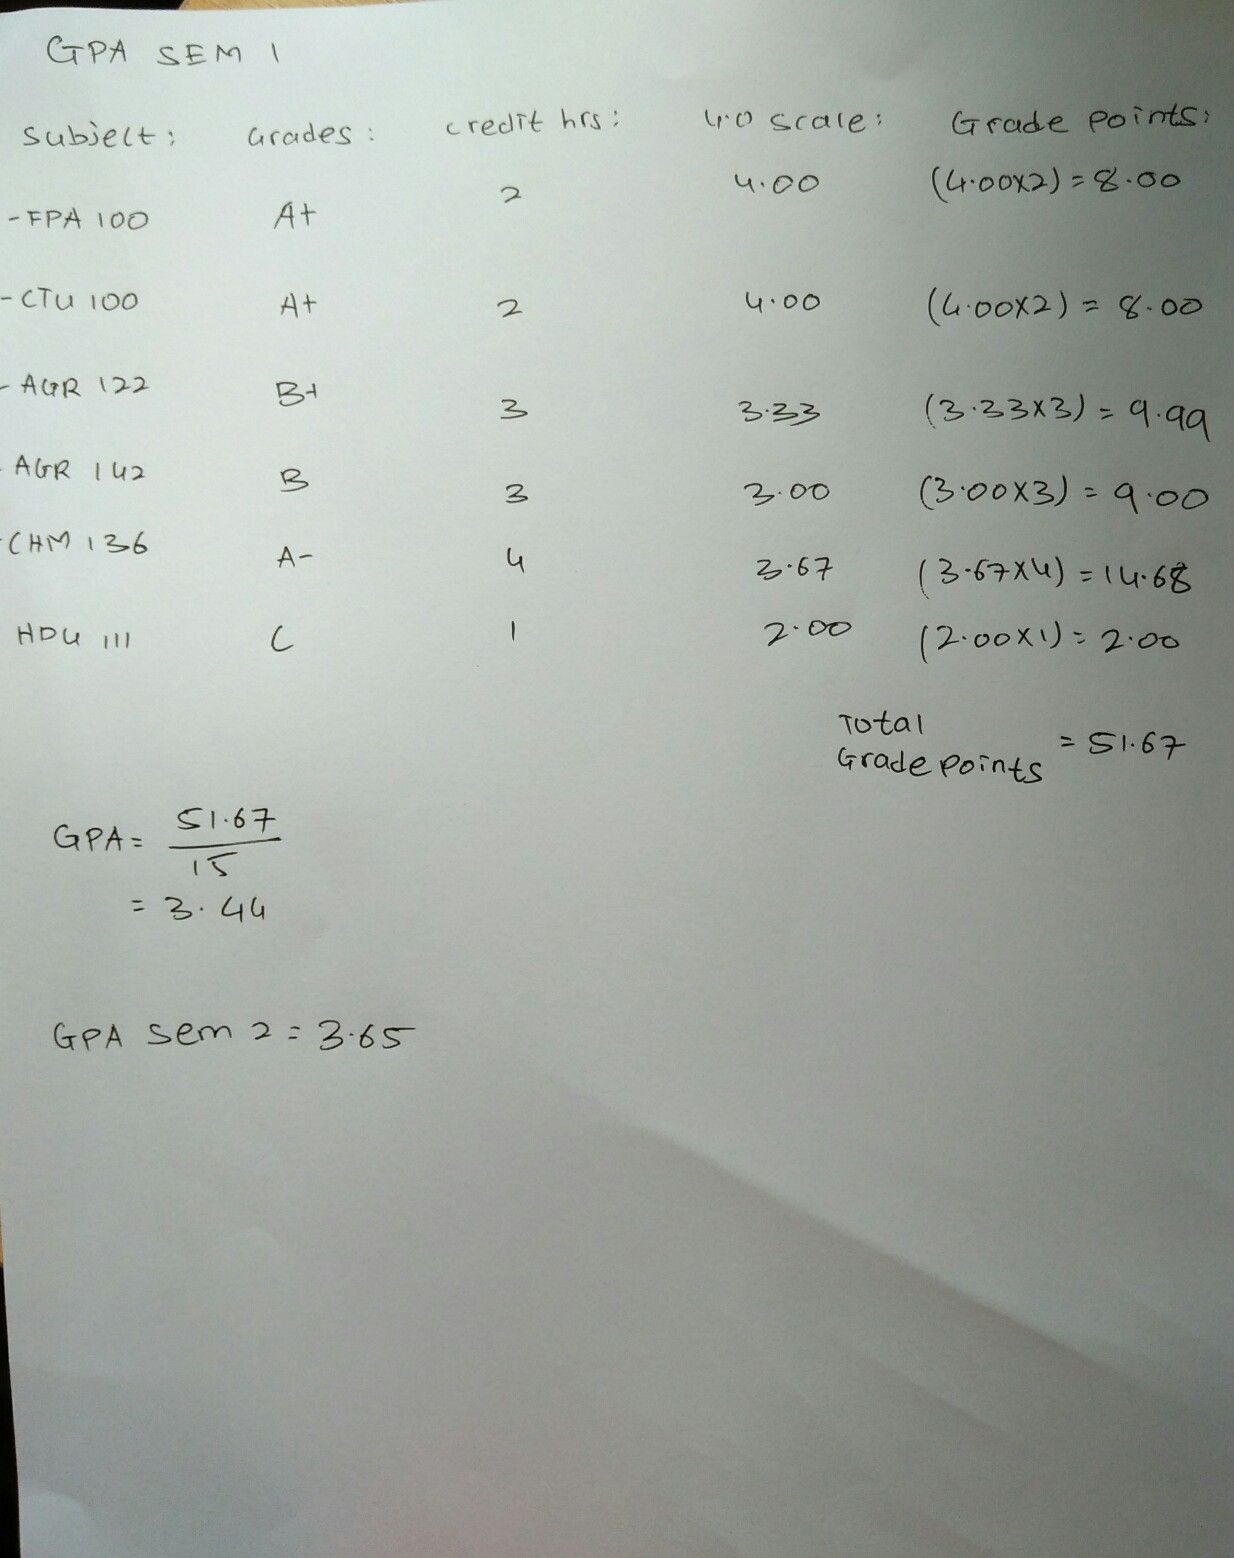 GPA SEM 1
Subject: Grades: credit hrs: 4.0 scale: Grade points:
- FPA 100 A+ 2 4.00 (4.00x2) = 8.00
- CTU 100 A+ 2 4.00 (4.00x2) = 8.00
- AGR 122 B+ 3 3.33 (3.33x3) = 9.99
- AGR 142 B 3 3.00 (3.00x3) = 9.00
- CHM 136 A- 4 3.67 (3.67x4) = 14.68
HDU 111 C 1 2.00 (2.00x1) = 2.00
Total
Grade points = 51.67
GPA = 51.67
15
= 3.44
GPA sem 2 = 3.65